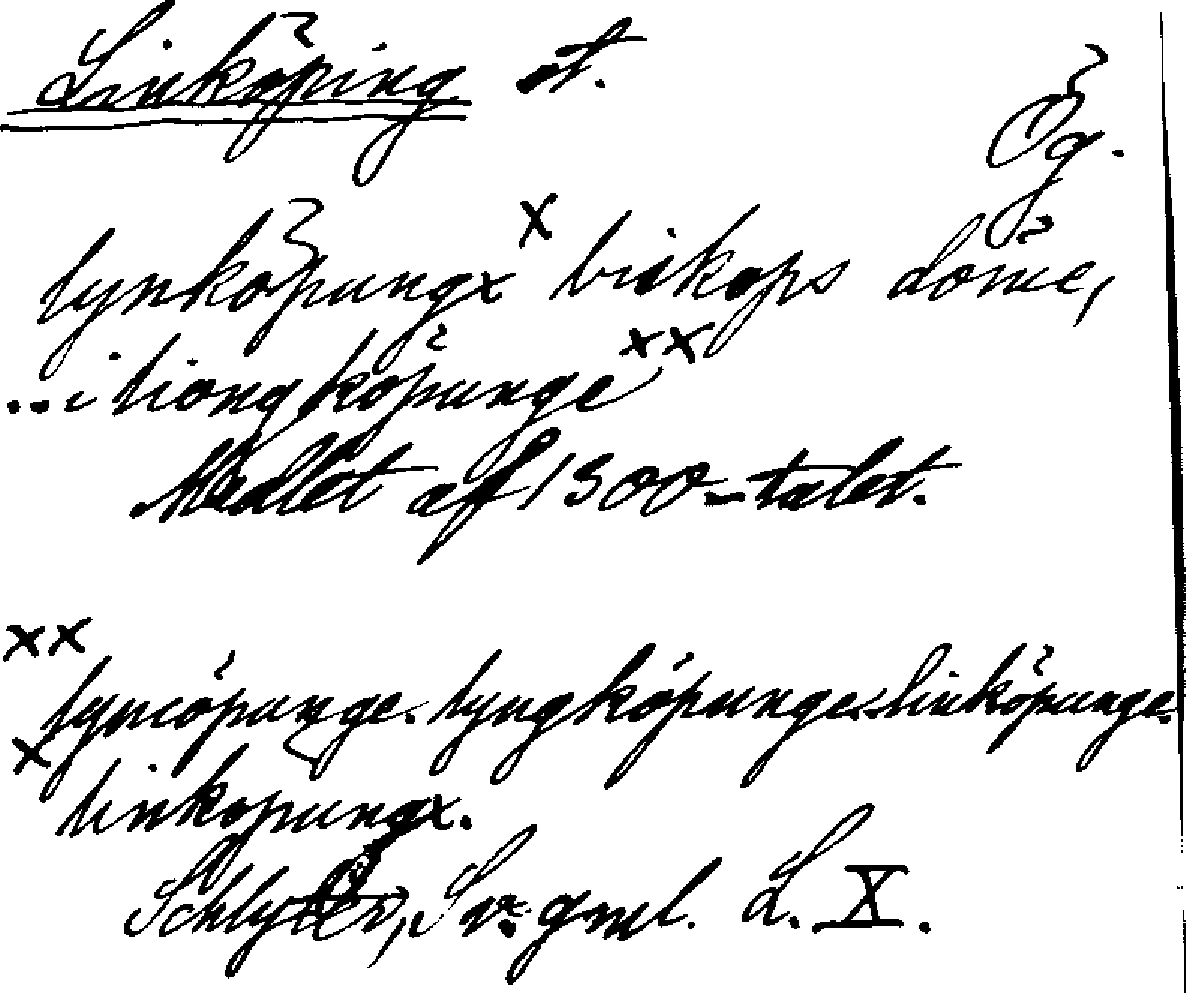 Linköping st.
Ög.
lynköpungx x biskops döme,
...i liongköpunge xx
Medlet af 1300-talet.
xx
lyncöpunge. lyngköpunge. linköpunge.
x
linkopungx.
Schlyter, Sv. gml. L. X.